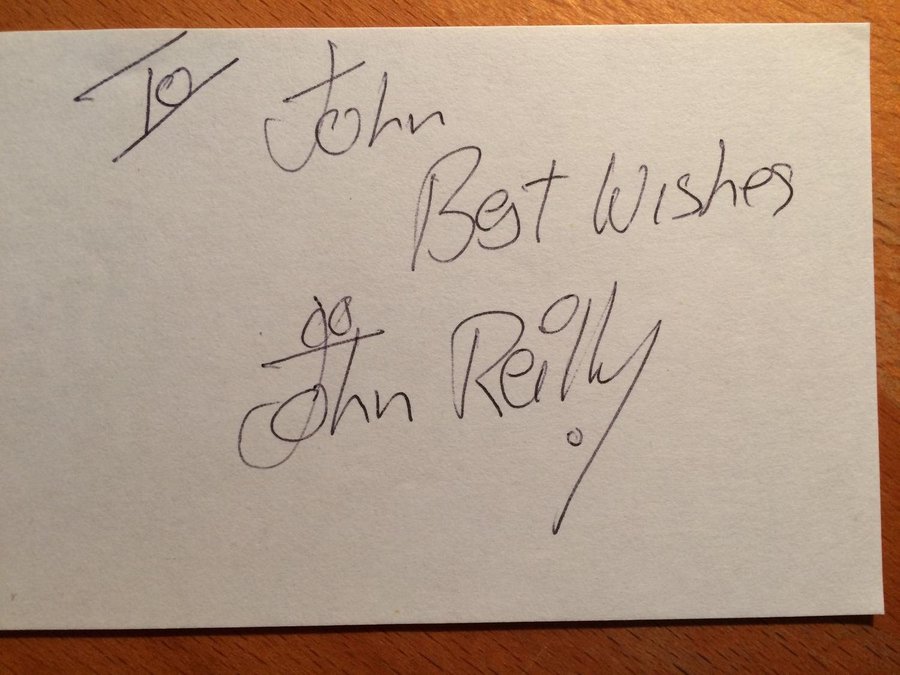 To John
Best Wishes
John Reilly